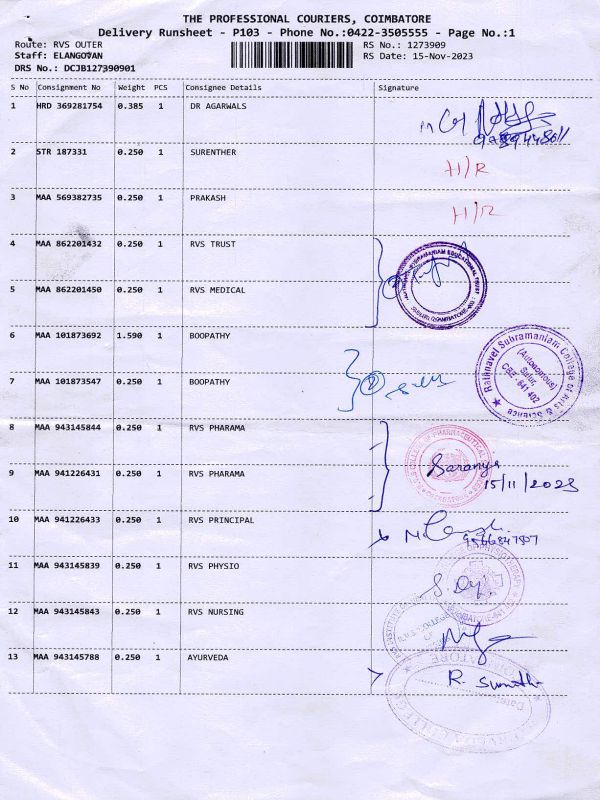 THE PROFESSIONAL COURIERS, COIMBATORE
Delivery Runsheet - P103 - Phone No.:0422-3505555 - Page No.:1
Route: RVS OUTER
Staff: ELANGOVAN
DRS No.: DCJB127390901
RS No.: 1273909
RS Date: 15-Nov-2023
S No Consignment No Weight PCS Consignee Details Signature
1 HRD 369281754 0.385 1 DR AGARWALS
2 STR 187331 0.250 1 SURENTHER H/R
3 MAA 569382735 0.250 1 PRAKASH H/R
4 MAA 862201432 0.250 1 RVS TRUST
5 MAA 862201450 0.250 1 RVS MEDICAL
6 MAA 101873692 1.590 1 BOOPATHY
Rathnavel Subramaniam College of Arts & Science
(Autonomous)
Sulur,
CBE - 641 402
7 MAA 101873547 0.250 1 BOOPATHY
8 MAA 943145844 0.250 1 RVS PHARAMA
9 MAA 941226431 0.250 1 RVS PHARAMA
Saranya
15/11/2023
10 MAA 941226433 0.250 1 RVS PRINCIPAL
9566847507
11 MAA 943145839 0.250 1 RVS PHYSIO
12 MAA 943145843 0.250 1 RVS NURSING
13 MAA 943145788 0.250 1 AYURVEDA
R. Sumathi